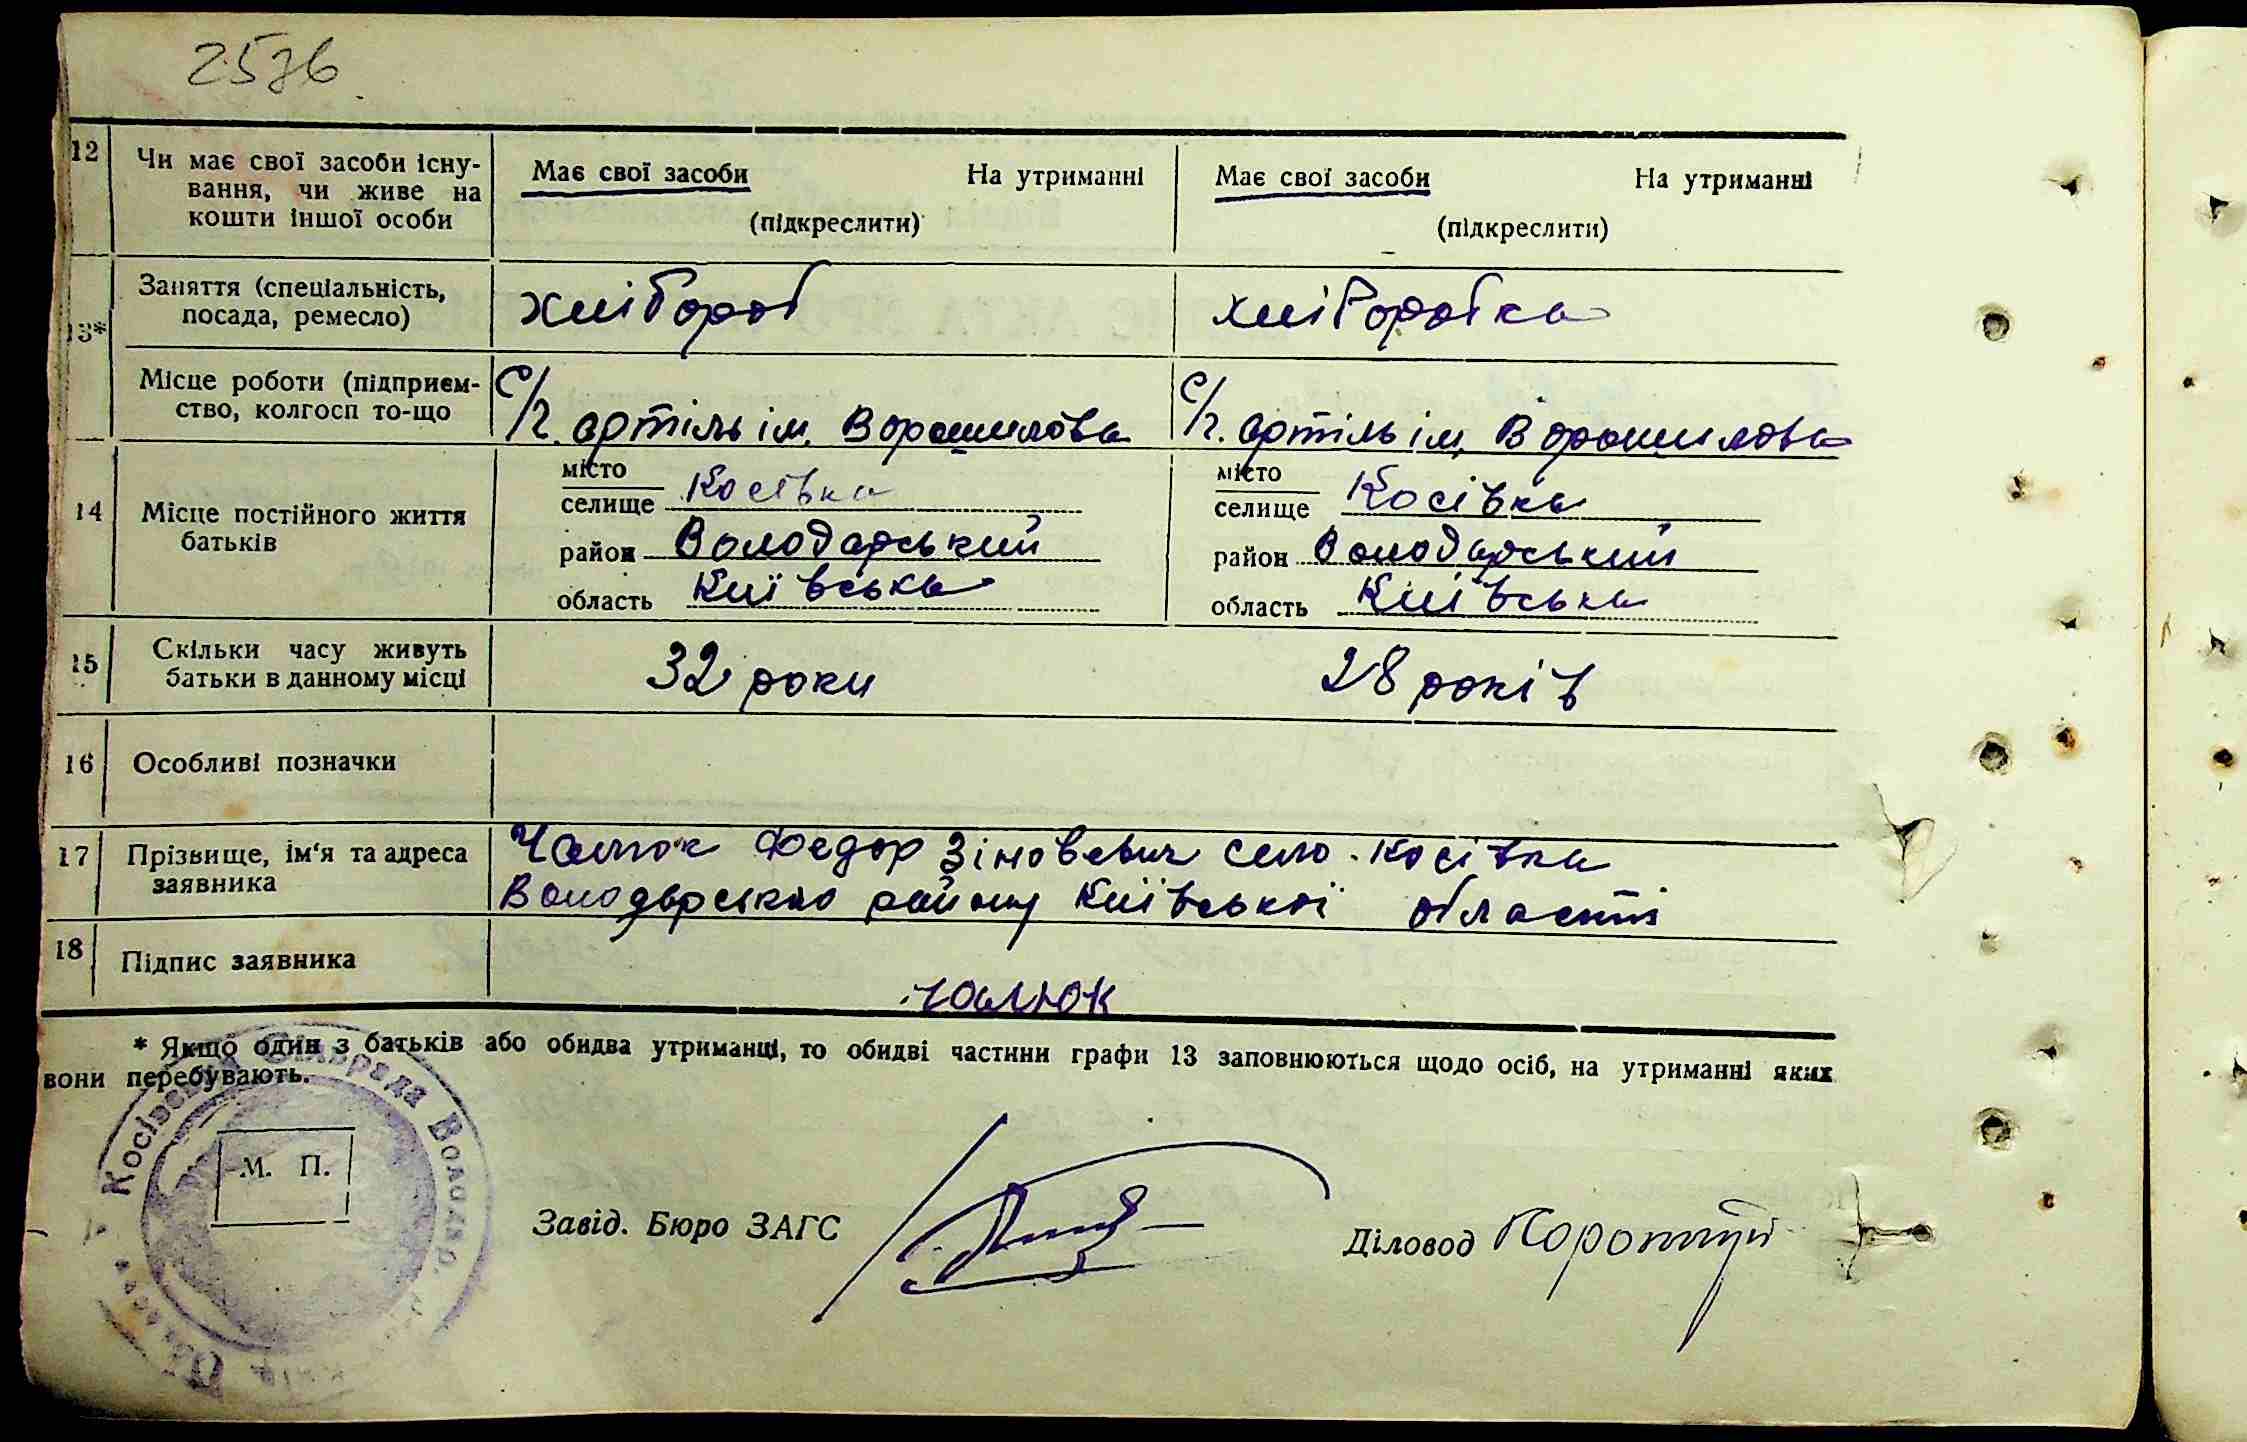 257б
12 Чи має свої засоби існу- Має свої засоби На утриманні Має свої засоби На утриманні
вання, чи живе на
кошти іншої особи (підкреслити) (підкреслити)
13* Заняття (спеціальність, хлібороб хліборобка
посада, ремесло)
Місце роботи (підприєм- с/г. артіль ім. Ворошилова с/г. артіль ім. Ворошилова
ство, колгосп то-що
14 Місце постійного життя батьків
місто
селище Косівка
район Володарський
область Київська
місто
селище Косівка
район Володарський
область Київська
15 Скільки часу живуть 32 роки 28 років
батьки в данному місці
16 Особливі позначки
17 Прізвище, ім'я та адреса Чалюк Федор Зіновевич село. Косівка
заявника Володарського району Київської області
18 Підпис заявника Чалюк
* Якщо один з батьків або обидва утриманці, то обидві частини графи 13 заповнюються щодо осіб, на утриманні яких
вони перебувають.
Косівська Сільрада Володар.
М. П.
Завід. Бюро ЗАГС Діловод